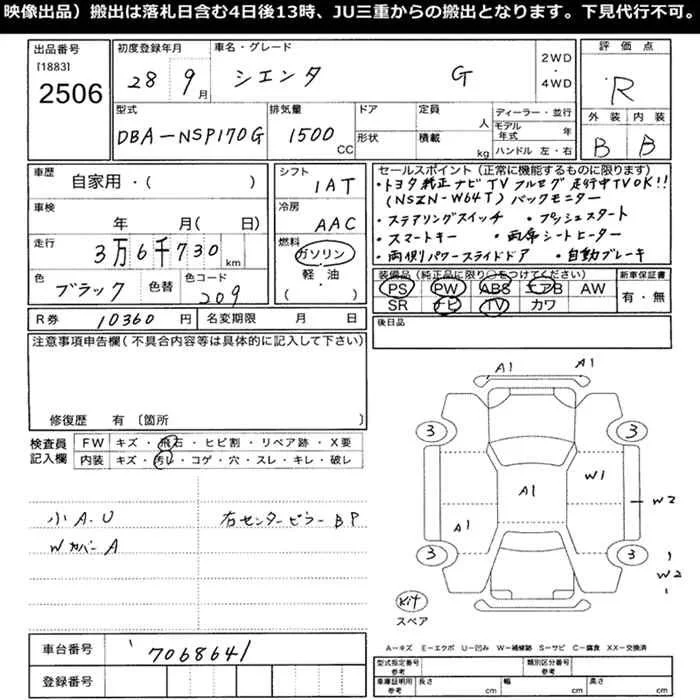 映像出品）搬出は落札日含む4日後13時、JU三重からの搬出となります。下見代行不可。
出品番号
[1883]
2506
初度登録年月
28 9月
車名・グレード
シエンタ G
2WD
・
4WD
評価点
R
型式
DBA-NSP170G
排気量
1500 CC
ドア
形状
定員 人
積載 kg
ディーラー・並行
モデル年式 年
ハンドル 左・右
外装 内装
B B
車歴
自家用・( )
車検
年 月( 日)
走行
3万6千730 km
色
ブラック
色替
色コード
209
シフト
1AT
冷房
AAC
燃料
ガソリン
軽・油
( ・ )
セールスポイント（正常に機能するものに限ります）
・トヨタ純正ナビTVフルセグ走行中TVOK!!
(NSZN-W64T)バックモニター
・ステアリングスイッチ ・プッシュスタート
・スマートキー ・両席シートヒーター
・両側パワースライドドア ・自動ブレーキ
装備品（純正品に限り○をつけてください）
PS PW ABS エアB AW
SR ナビ TV カワ
新車保証書
有・無
R券 10360 円 名変期限 月 日
後日品
注意事項申告欄(不具合内容等は具体的に記入して下さい)
修復歴 有〔箇所 〕
検査員
記入欄
FW キズ・飛石・ヒビ割・リペア跡・X要
内装 キズ・汚レ・コゲ・穴・スレ・キレ・破レ
小A.U
Wカバー A
右センターピラーBP
A1 A1
3 3
W1
A1
W2
A1
3 3
W2
Kit
スペア
車台番号
7068641
登録番号
A―キズ E―エクボ U―凹み W―補修跡 S―サビ C―腐食 XX―交換済
型式指定番号
参考
類別区分番号
車庫証明用
参考
長さ cm 幅 cm 高さ cm